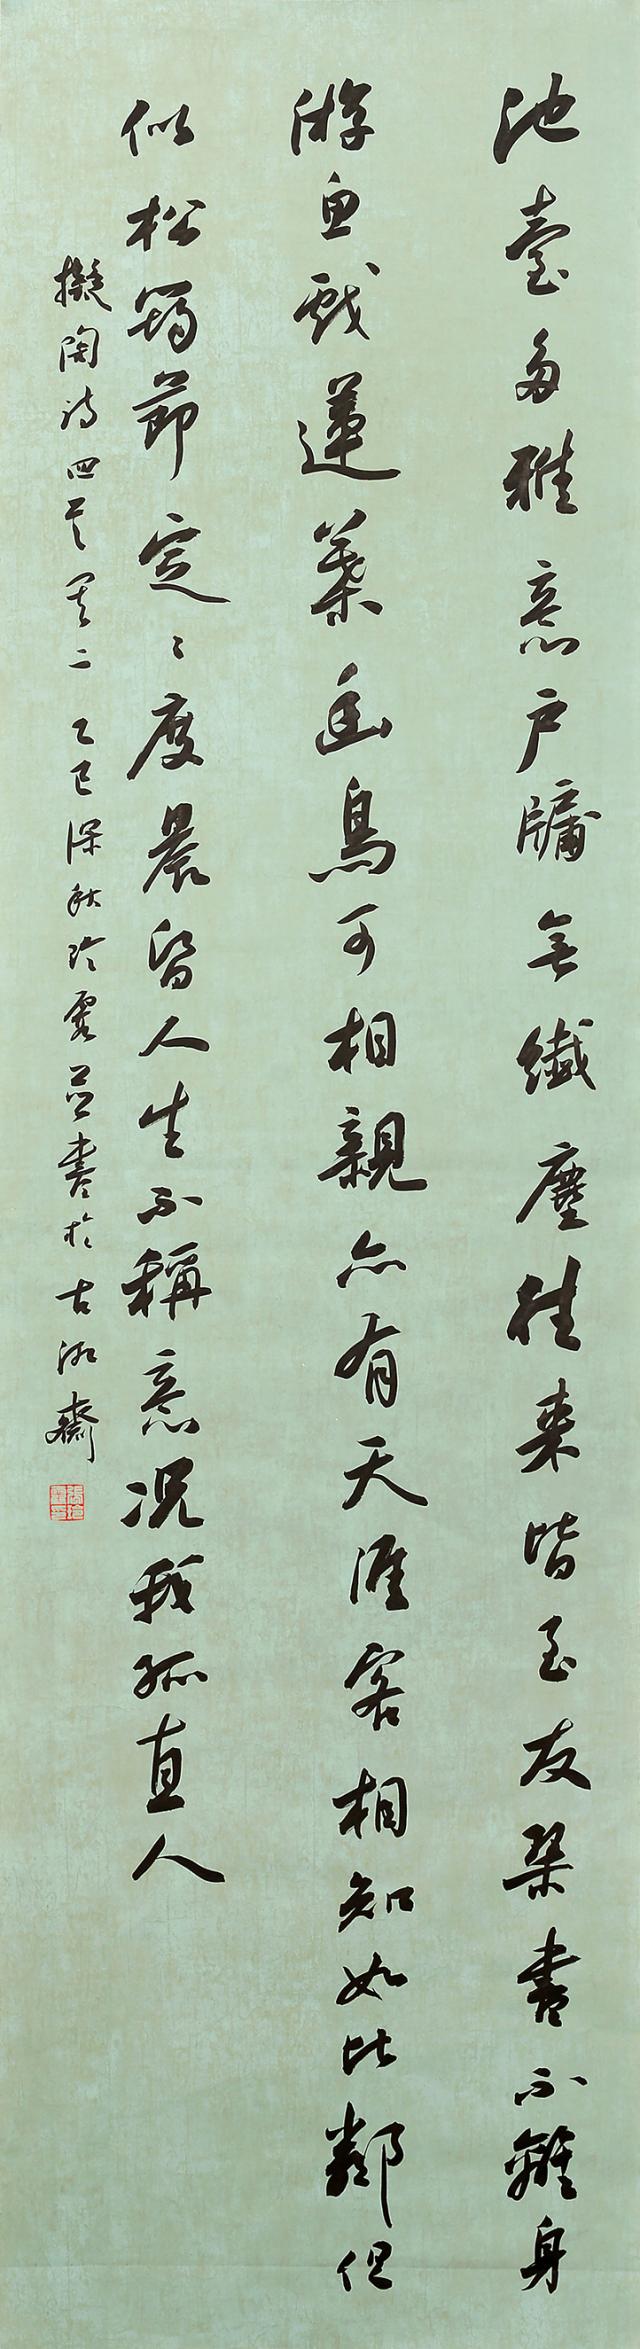 池臺多雅意戶牖無纖塵往来皆至友琴書不離身
游魚戲蓮葉幽鳥可相親亦有天涯客相知如比鄰但
似松筠節定〻度晨昏人生不稱意况我孤直人
擬陶詩四首其二 乙巳深秋 書於古齋